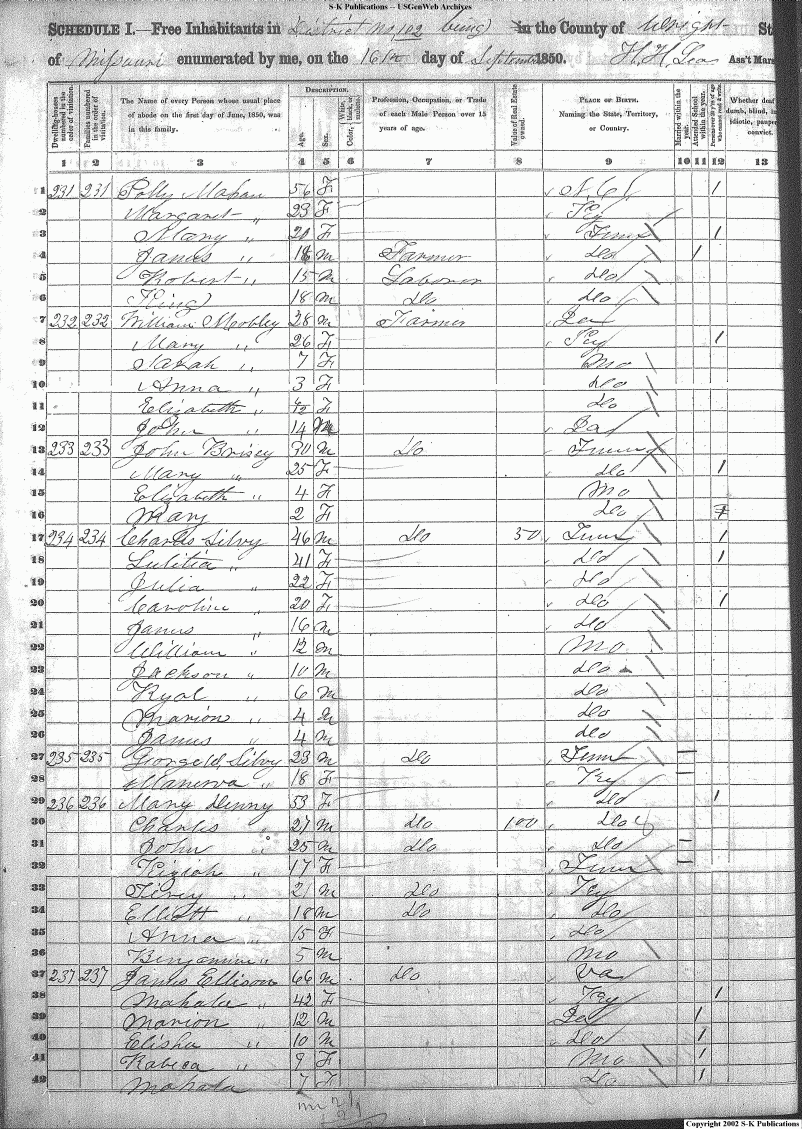 S-K Publications -- USGenWeb Archives
SCHEDULE I.—Free Inhabitants in District No 112 being in the County of Wright St
of Missouri enumerated by me, on the 16th day of September 1850. H. H. Ass't Mars
Dwelling-houses numbered in the order of visitation.
Families numbered in the order of visitation.
The Name of every Person whose usual place of abode on the first day of June, 1850, was in this family.
DESCRIPTION.
Age.
Sex.
Color, White, black, or mulatto.
Profession, Occupation, or Trade of each Male Person over 15 years of age.
Value of Real Estate owned.
PLACE OF BIRTH. Naming the State, Territory, or Country.
Married within the year.
Attended School within the year.
Persons over 20 y'rs of age who cannot read & write.
Whether deaf dumb, blind, in idiotic, pauper convict.
1 2 3 4 5 6 7 8 9 10 11 12 13
1 231 231 Polly Mahan 56 F N.C. 1
2 Margaret " 23 F Ky
3 Mary " 20 F Tenn 1
4 James " 18 M Farmer do 1
5 Robert " 15 M Laborer do
6 King 18 M do do
7 232 232 William Mobley 28 M Farmer
8 Mary " 26 F Ky 1
9 Sarah " 7 F Mo
10 Anna " 3 F do
11 Elizabeth " F do
12 John " 14 M
13 233 233 John Brisey 30 M do Tenn
14 Mary " 25 F do 1
15 Elizabeth " 4 F Mo
16 Mary 2 F do
17 234 234 Charles Silvy 46 M do 50 Tenn 1
18 Lutitia " 41 F do 1
19 Julia " 22 F do
20 Caroline " 20 F do 1
21 James " 16 M do
22 William " 12 M Mo
23 Jackson " 10 M do
24 Ryal " 6 M do
25 Marion " 4 M do
26 James " 4 M do
27 235 235 George Silvy 23 M do Tenn —
28 Manerva " 18 F Ky —
29 236 236 Mary Denny 53 F do 1
30 Charles " 27 M do 100 do
31 John " 25 M do do —
32 Kiziah " 17 F Tenn —
33 21 M do Ky
34 Elliott " 18 M do do
35 Anna " 15 F do
36 Benjamine " 5 M Mo
37 237 237 James Ellison 66 M do Va
38 Mahala " 42 F Ky 1
39 Marion " 12 M 1
40 Elisha " 10 M do 1
41 Rabeca " 9 F Mo 1
42 Mahala 7 F do 1
Copyright 2002 S-K Publications